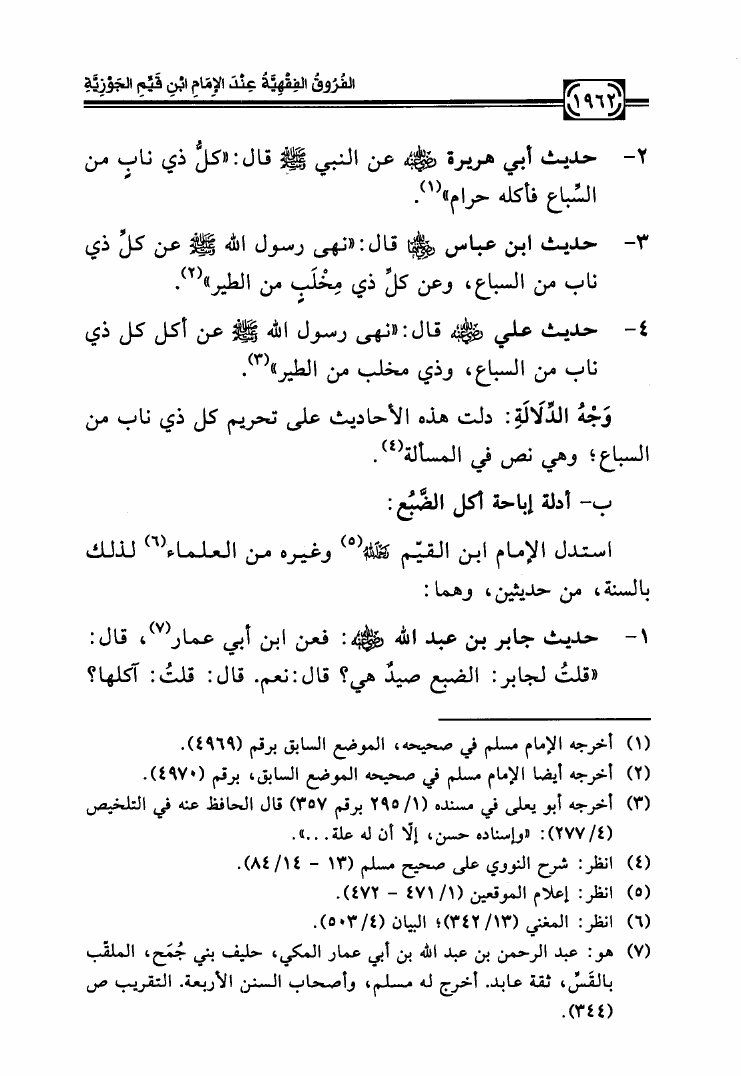 الفُرُوقُ الفِقْهِيَّةُ عِنْدَ الإمَامِ ابْنِ قَيِّمِ الجَوْزِيَّةِ
١٩٦٢
٢- حديث أبي هريرة رضي الله عنه عن النبي ﷺ قال: «كلُّ ذي نابٍ من
السِّباع فأكله حرام»(١).
٣- حديث ابن عباس رضي الله عنهما قال: «نهى رسول الله ﷺ عن كلِّ ذي
ناب من السباع، وعن كلِّ ذي مِخْلَبٍ من الطير»(٢).
٤- حديث علي رضي الله عنه قال: «نهى رسول الله ﷺ عن أكل كل ذي
ناب من السباع، وذي مخلب من الطير»(٣).
وَجْهُ الدِّلَالَةِ: دلت هذه الأحاديث على تحريم كل ذي ناب من
السباع؛ وهي نص في المسألة(٤).
ب- أدلة إباحة أكل الضَّبُع:
استدل الإمام ابن القيّم رحمه الله(٥) وغيره من العلماء(٦) لذلك
بالسنة، من حديثين، وهما:
١- حديث جابر بن عبد الله رضي الله عنه: فعن ابن أبي عمار(٧)، قال:
«قلتُ لجابر: الضبع صيدٌ هي؟ قال: نعم. قال: قلتُ: آكلها؟
(١) أخرجه الإمام مسلم في صحيحه، الموضع السابق برقم (٤٩٦٩).
(٢) أخرجه أيضا الإمام مسلم في صحيحه الموضع السابق، برقم (٤٩٧٠).
(٣) أخرجه أبو يعلى في مسنده (١/ ٢٩٥ برقم ٣٥٧) قال الحافظ عنه في التلخيص
(٤/ ٢٧٧): «وإسناده حسن، إلّا أن له علة...».
(٤) انظر: شرح النووي على صحيح مسلم (١٣ - ١٤/ ٨٤).
(٥) انظر: إعلام الموقعين (١/ ٤٧١ - ٤٧٢).
(٦) انظر: المغني (١٣/ ٣٤٢)؛ البيان (٤/ ٥٠٣).
(٧) هو: عبد الرحمن بن عبد الله بن أبي عمار المكي، حليف بني جُمَح، الملقّب
بالقَسِّ، ثقة عابد. أخرج له مسلم، وأصحاب السنن الأربعة. التقريب ص
(٣٤٤).